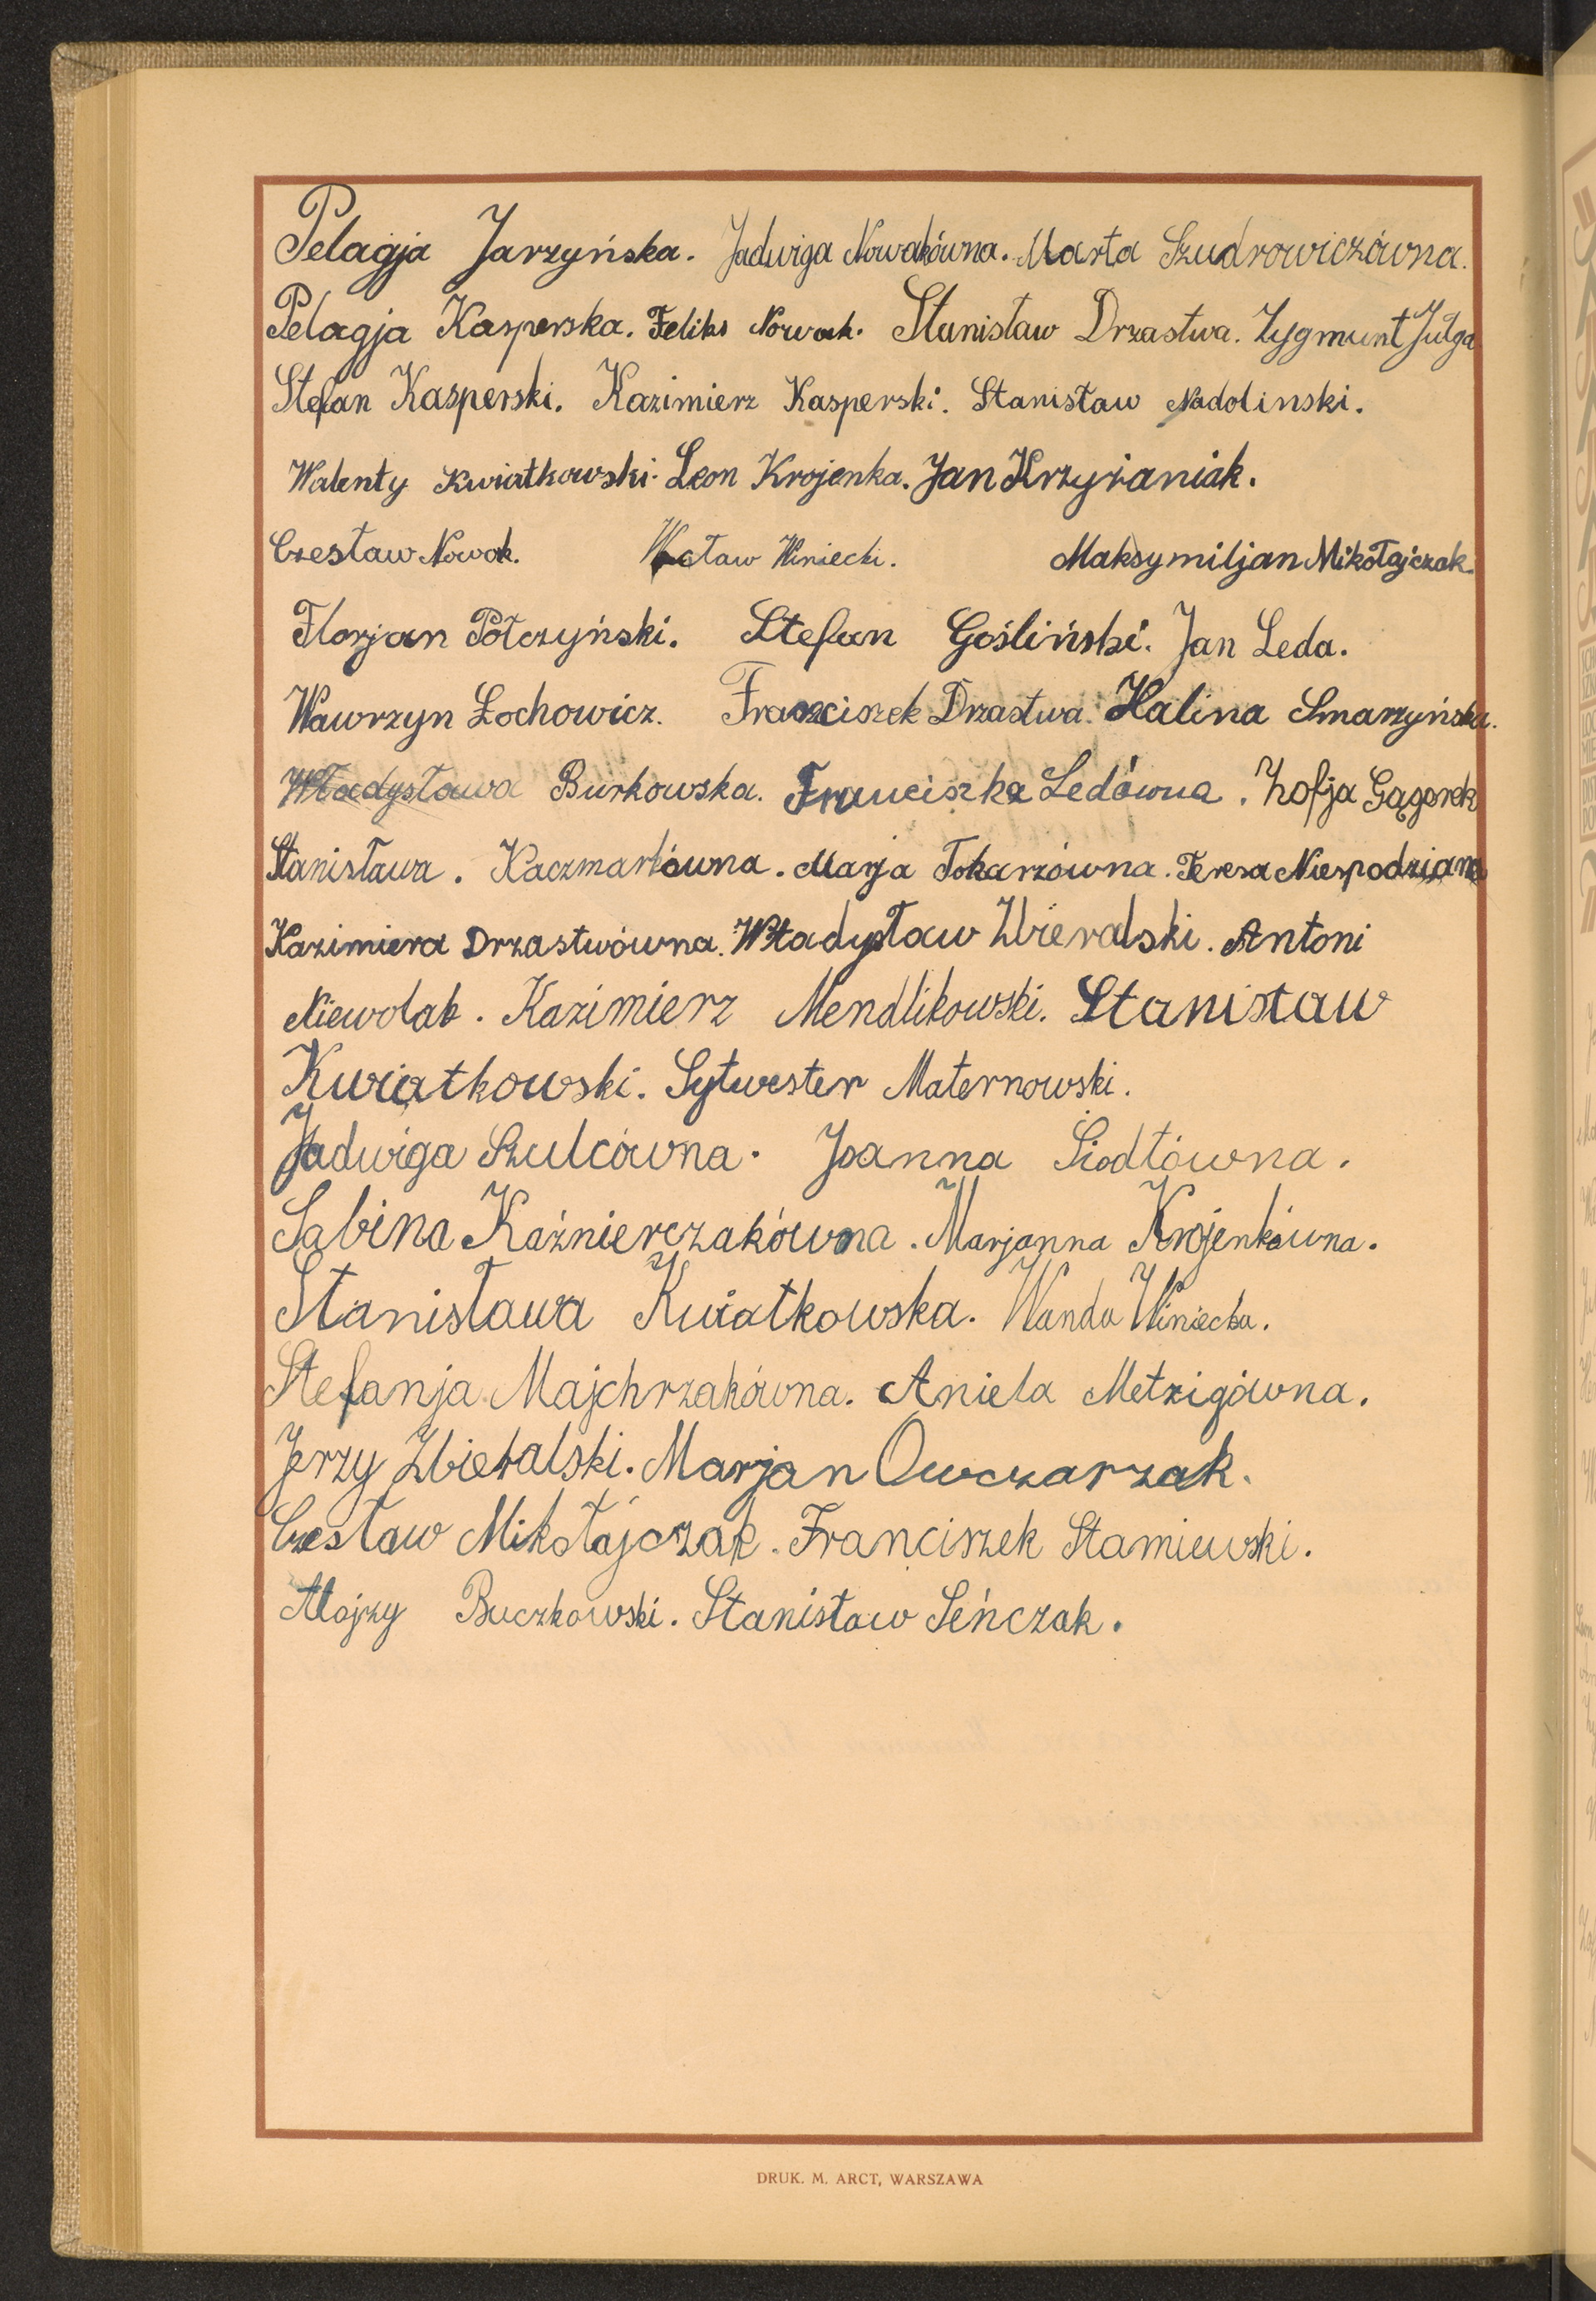 Pelagja Jarzyńska. Jadwiga Nowakówna. Marta Szudrowiczówna.
Pelagja Kasperska. Feliks Nowak. Stanisław Drzastwa. Zygmunt Jułga
Stefan Kasperski. Kazimierz Kasperski. Stanisław Nadolinski.
Walenty Kwiatkowski. Leon Krojenka. Jan Krzyżaniak.
Czesław Nowak. Wacław Winiecki. Maksymiljan Mikołajczak.
Florjan Połczyński. Stefan Gośliński. Jan Leda.
Wawrzyn Łochowicz. Franciszek Drzastwa. Halina Smarzyńska.
Władysława Burkowska. Franciszka Ledówna. Zofja Gągorek
Stanisława. Kaczmarkówna. Marja Tokarzówna. Teresa Niespodziana
Kazimiera Drzastwówna. Władysław Zbieralski. Antoni
Niewolak. Kazimierz Mendlikowski. Stanisław
Kwiatkowski. Sylwester Maternowski.
Jadwiga Szulcówna. Joanna Siodłówna.
Sabina Kaźnierczakówna. Marjanna Krojenkówna.
Stanisława Kwiatkowska. Wanda Winiecka.
Stefanja Majchrzakówna. Aniela Metzigówna.
Jerzy Zbieralski. Marjan Owczarzak.
Czesław Mikołajczak. Franciszek Stamiewski.
Alojzy Buczkowski. Stanisław Seńczak.
DRUK. M. ARCT, WARSZAWA